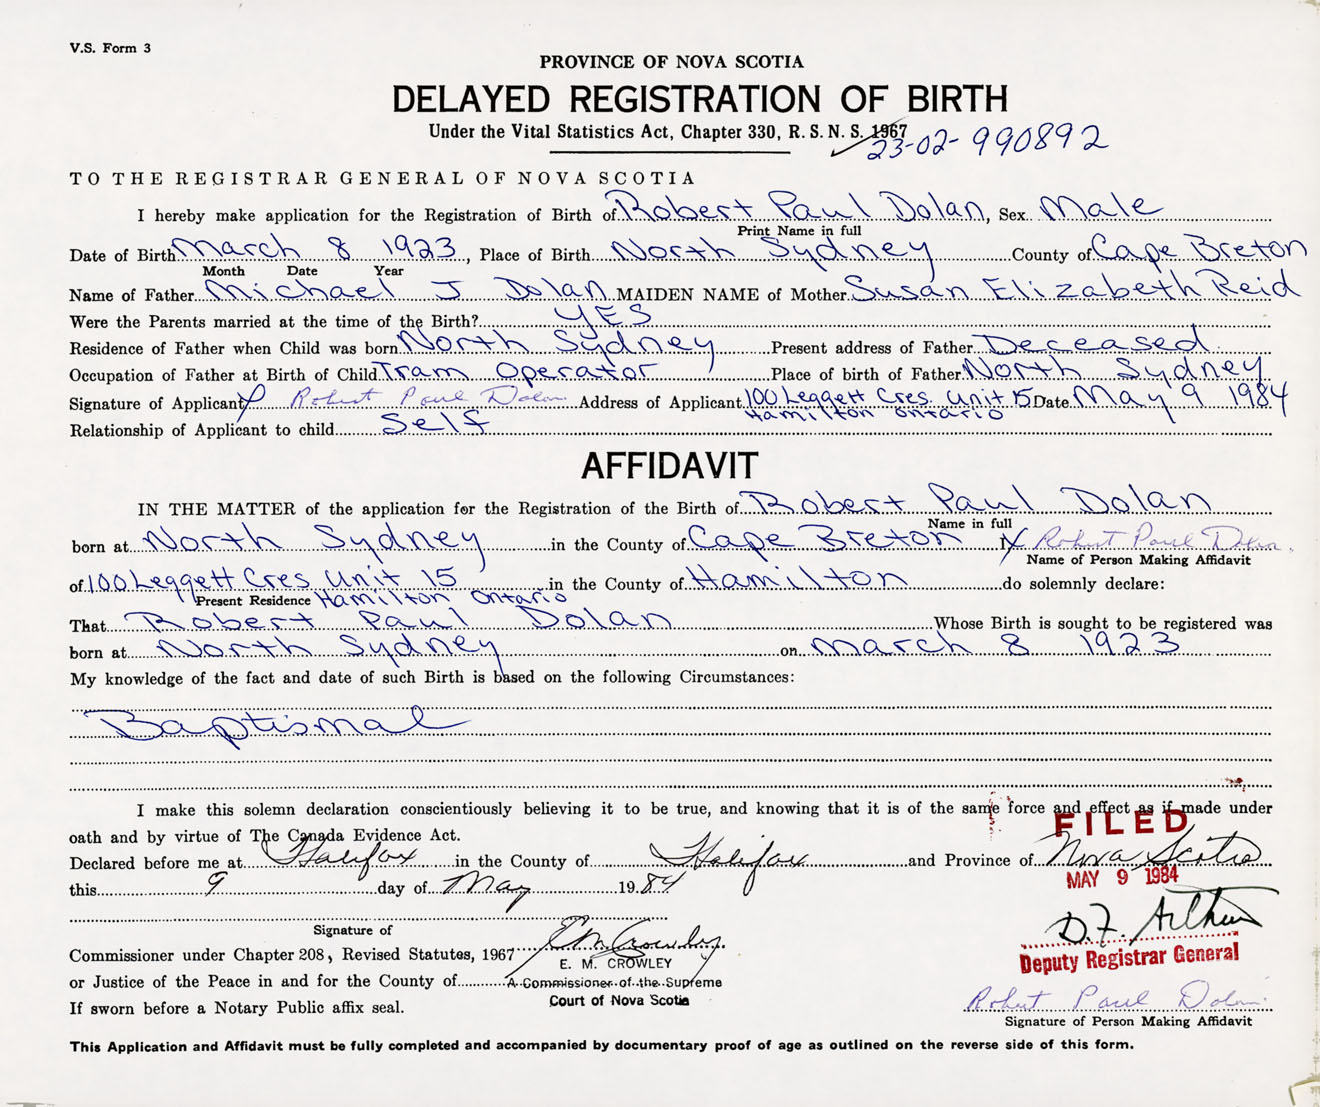 V.S. Form 3
PROVINCE OF NOVA SCOTIA
DELAYED REGISTRATION OF BIRTH
Under the Vital Statistics Act, Chapter 330, R. S. N. S. 1967
23-02-990892
TO THE REGISTRAR GENERAL OF NOVA SCOTIA
I hereby make application for the Registration of Birth of Robert Paul Dolan, Sex Male
Print Name in full
Date of Birth March 8 1923, Place of Birth North Sydney County of Cape Breton
Month Date Year
Name of Father Michael J Dolan MAIDEN NAME of Mother Susan Elizabeth Reid
Were the Parents married at the time of the Birth? YES
Residence of Father when Child was born North Sydney Present address of Father Deceased
Occupation of Father at Birth of Child Tram Operator Place of birth of Father North Sydney
Signature of Applicant Robert Paul Dolan Address of Applicant 100 Leggett Cres. Unit 15 Date May 9 1984
Hamilton Ontario
Relationship of Applicant to child Self
AFFIDAVIT
IN THE MATTER of the application for the Registration of the Birth of Robert Paul Dolan
Name in full
born at North Sydney in the County of Cape Breton I, X Robert Paul Dolan
Name of Person Making Affidavit
of 100 Leggett Cres Unit 15 in the County of Hamilton do solemnly declare:
Present Residence Hamilton Ontario
That Robert Paul Dolan Whose Birth is sought to be registered was
born at North Sydney on March 8 1923
My knowledge of the fact and date of such Birth is based on the following Circumstances:
Baptismal
I make this solemn declaration conscientiously believing it to be true, and knowing that it is of the same force and effect as if made under
oath and by virtue of The Canada Evidence Act.
FILED
Declared before me at Halifax in the County of Halifax and Province of Nova Scotia
MAY 9 1984
this 9 day of May 1984
D.F. Arthur
Deputy Registrar General
Signature of
Commissioner under Chapter 208, Revised Statutes, 1967 E M Crowley
E. M. CROWLEY
or Justice of the Peace in and for the County of A Commissioner of the Supreme
Court of Nova Scotia
If sworn before a Notary Public affix seal.
Robert Paul Dolan
Signature of Person Making Affidavit
This Application and Affidavit must be fully completed and accompanied by documentary proof of age as outlined on the reverse side of this form.